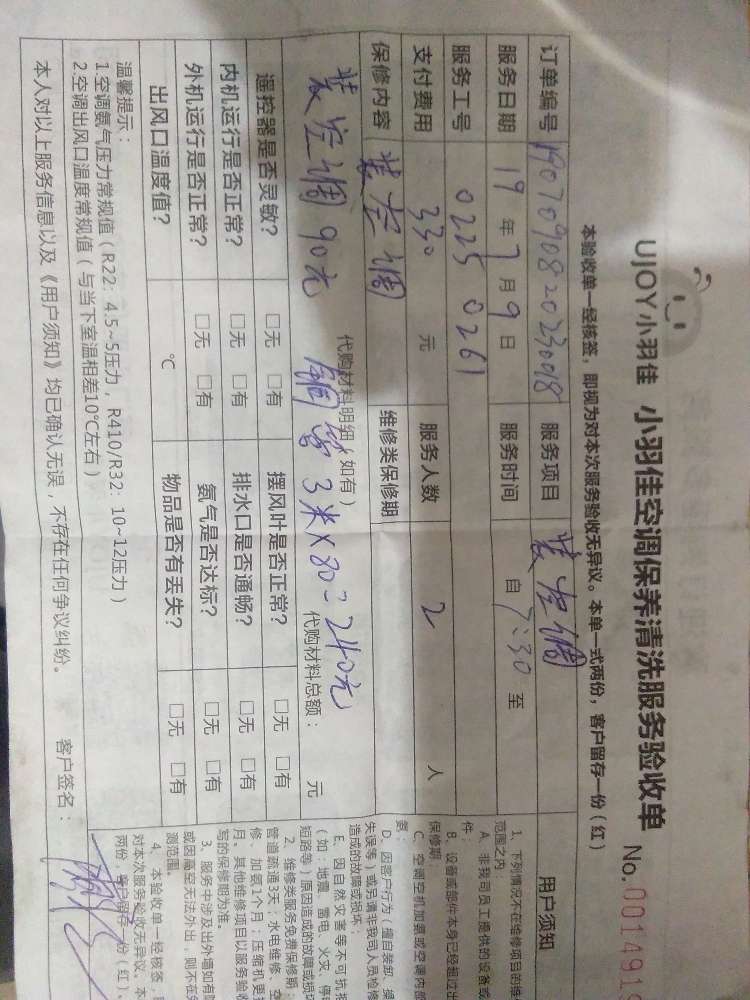 UJOY小羽佳 小羽佳空调保养清洗服务验收单 No.0014919
本验收单一经核签，即视为对本次服务验收无异议。本单一式两份，客户留存一份（红）
订单编号 1907090820230018 服务项目 装空调
服务日期 19 年 7 月 9 日 服务时间 自 7:30 至
服务工号 0225 0261
支付费用 330 元 服务人数 2 人
保修内容 装空调 维修类保修期
代购材料明细（如有） 代购材料总额： 元
装空调90元 铜管3米×80=240元
遥控器是否灵敏？ □无 □有 摆风叶是否正常？ □无 □有
内机运行是否正常？ □无 □有 排水口是否通畅？ □无 □有
外机运行是否正常？ □无 □有 氨气是否达标？ □无 □有
出风口温度值？ ℃ 物品是否有丢失？ □无 □有
温馨提示：
1.空调氨气压力常规值（R22：4.5~5压力，R410/R32：10~12压力）
2.空调出风口温度常规值（与当下室温相差10℃左右）
本人对以上服务信息以及《用户须知》均已确认无误，不存在任何争议纠纷。 客户签名：
用户须知
1、下列情况不在维修项目的维
范围之内：
A、非我司员工提供的设备或
件；
B、设备或部件本身已经超过出
保修期；
C、空调空机加氨或空调内部
D、因客户行为（擅自装卸、操
失误等）或另请非我司人员检修
造成的故障或损坏；
E、因自然灾害等不可抗拒
（如：地震、雷电、火灾、停电
短路等）原因造成的故障或损坏
2、维修类服务免费保修期：
管道疏通3天；水电维修、空
修、加氨1个月；压缩机更换
月，其他维修项目以服务验收
写的保修期为准。
3、服务中涉及出外墙如有障
或因高层无法外出，则不在免
测范围。
4、本验收单一经核签，即
对本次服务验收无异议。本
两份，客户留存一份（红）。